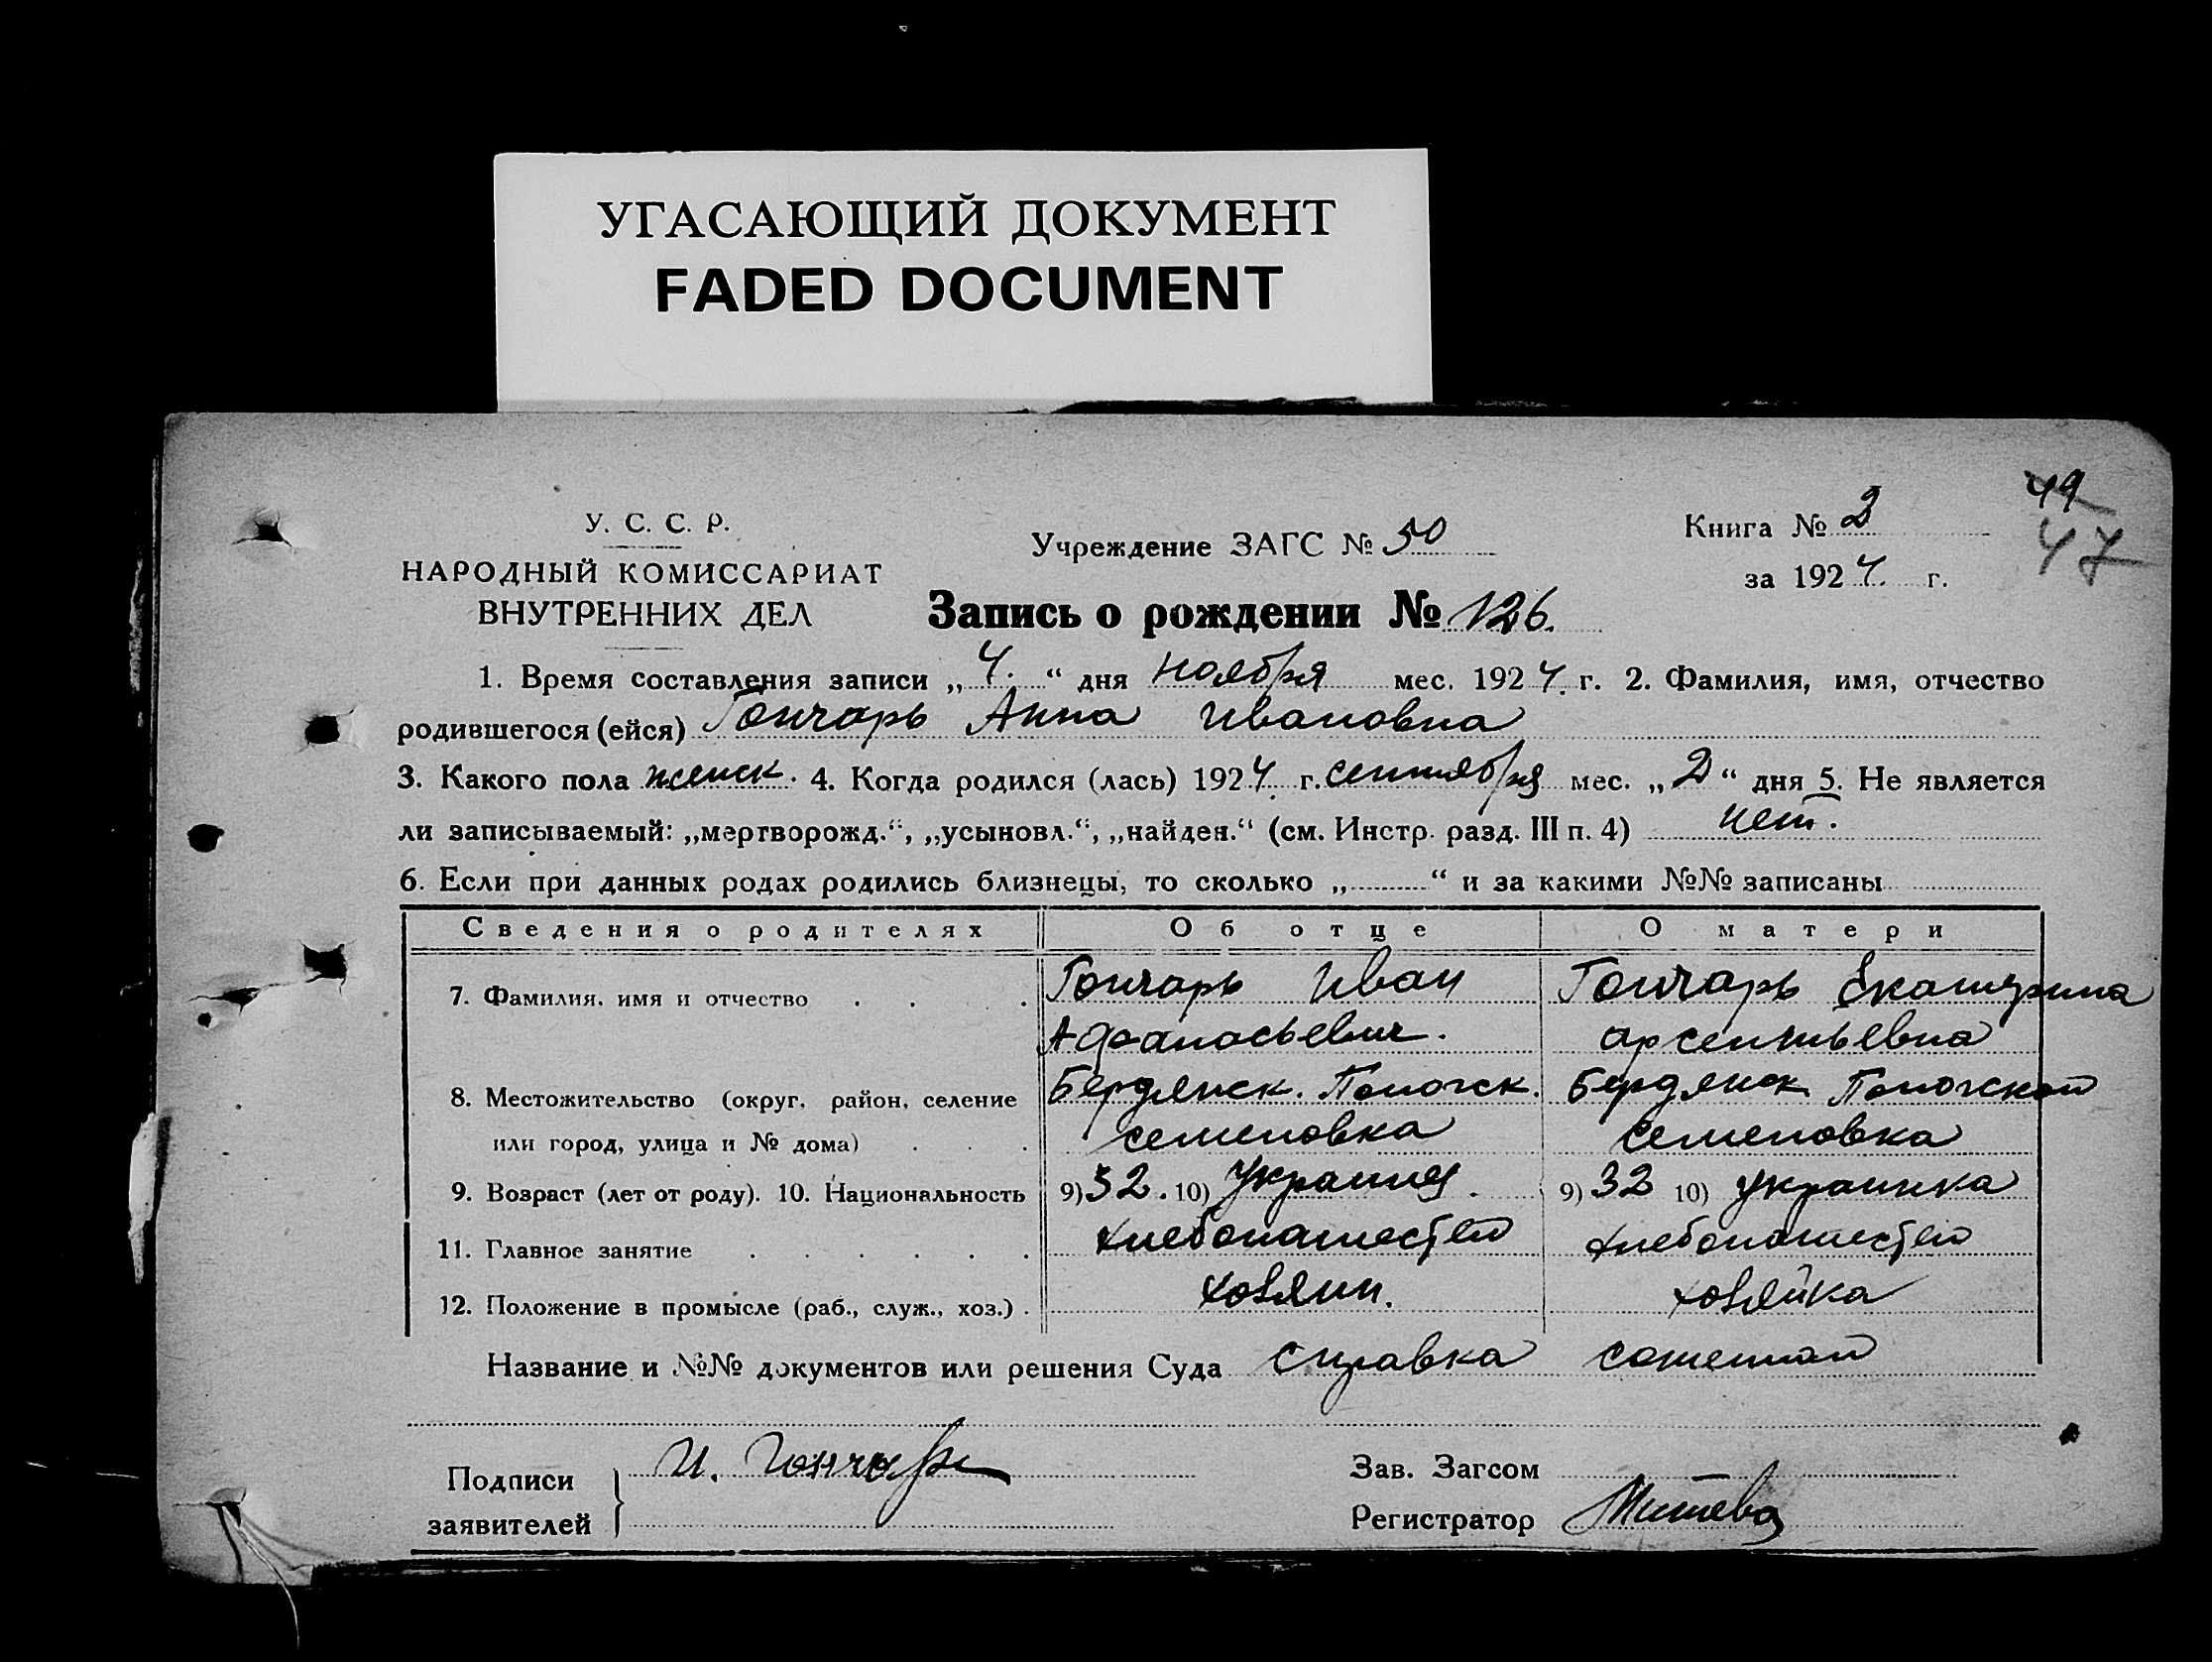 УГАСАЮЩИЙ ДОКУМЕНТ
FADED DOCUMENT
49
47
У. С. С. Р.
НАРОДНЫЙ КОМИССАРИАТ
ВНУТРЕННИХ ДЕЛ
Учреждение ЗАГС № 50
Книга № 2
за 1924 г.
Запись о рождении № 126.
1. Время составления записи „4.“ дня ноября мес. 1924. г. 2. Фамилия, имя, отчество
родившегося (ейся) Гончарь Анна Ивановна
3. Какого пола женск. 4. Когда родился (лась) 1924. г. сентября мес. „2“ дня 5. Не является
ли записываемый: „мертворожд.“, „усыновл.“, „найден.“ (см. Инстр. разд. III п. 4) нет.
6. Если при данных родах родились близнецы, то сколько „..........“ и за какими №№ записаны
Сведения о родителях Об отце О матери
7. Фамилия, имя и отчество . . . Гончарь Иван Гончарь Екатерина
Афанасьевич. Арсентьевна
8. Местожительство (округ, район, селение Бердянск. Пологск. Бердянск Пологской
или город, улица и № дома) . . . Семеновка Семеновка
9. Возраст (лет от роду). 10. Национальность 9) 32. 10) Украинец. 9) 32 10) Украинка
11. Главное занятие . . . . . . хлебопашество хлебопашество
12. Положение в промысле (раб., служ., хоз.) . хозяин. хозяйка
Название и №№ документов или решения Суда Справка
Подписи
заявителей
И. Гончарь
Зав. Загсом
Регистратор